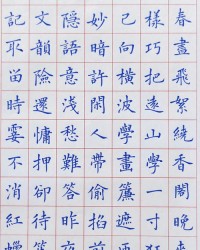 春盡飛絮繞香閣晚
樣巧把遠山學一寸
已向橫波覺畫簾遮
妙暗許閑人帶偷掐前
隱語意淺愁難答昨
文韻險還慵押卻待
記取留時霎不消紅蠟